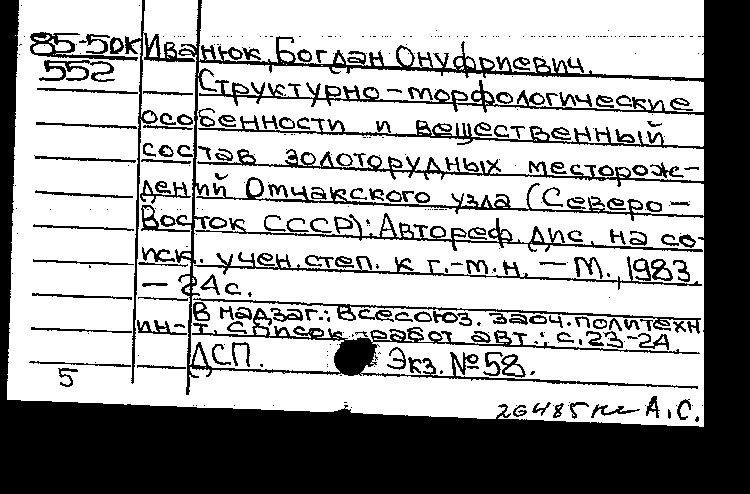 85-50к Иванюк, Богдан Онуфриевич.
552 Структурно-морфологические
особенности и вещественный
состав золоторудных месторож-
дений Омчакского узла (Северо-
Восток СССР): Автореф. дис. на со-
иск. учен. степ. к г.-м.н. — М., 1983.
— 24 с.
В надзаг.: Всесоюз. заоч. политехн.
ин-т. Список работ авт.: с. 23-24.
ДСП. Экз. №58.
5
А.С.